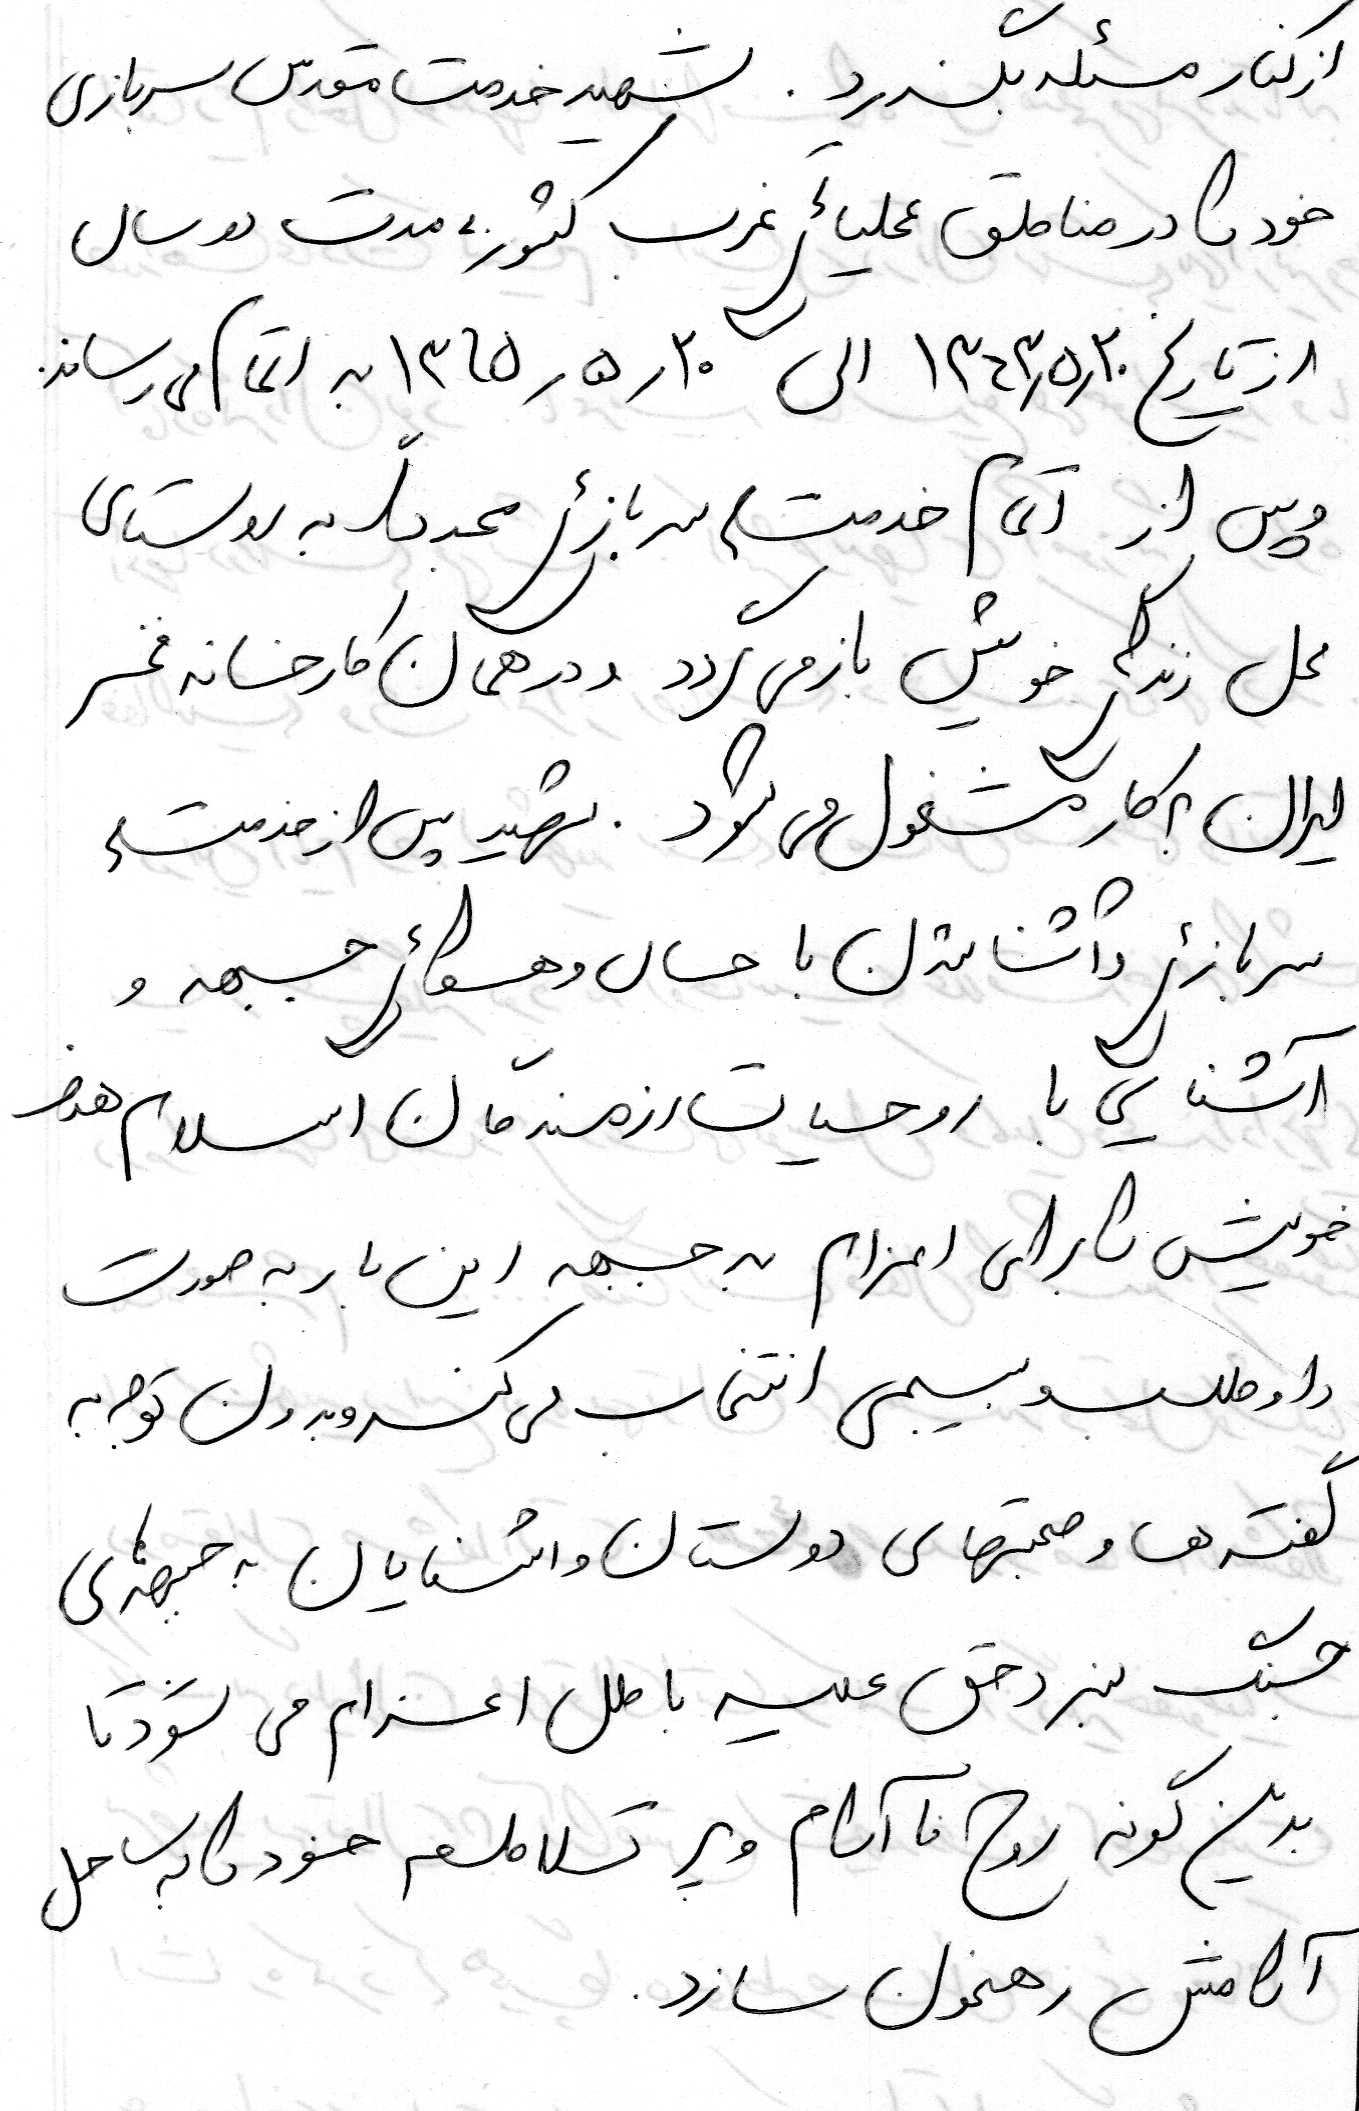 از کنار مسئله بگذرد. شهید خدمت مقدس سربازی
خود را در مناطق عملیاتی غرب کشور به مدت دو سال
از تاریخ ۱۳۶۳٫۵٫۳۰ الی ۳۰٫۵٫۱۳۶۵ به اتمام می رساند.
و پس از اتمام خدمت سربازی مجدداً به روستای
محل زندگی خویش باز می گردد و در همان کارخانه فخر
ایران به کار مشغول می شود. شهید پس از خدمت
سربازی و آشنا شدن با حال و هوای جبهه و
آشنایی با روحیات رزمندگان اسلام
خویش را برای اعزام به جبهه این بار به صورت
داوطلب و بسیجی انتخاب می کند و بدون توجه به
گفته ها و صحبتهای دوستان و آشنایان به جبهه های
جنگ نبرد حق علیه باطل اعزام می شود تا
بدین گونه روح نا آرام و پر تلاطم خود را به ساحل
آرامش رهنمون سازد.